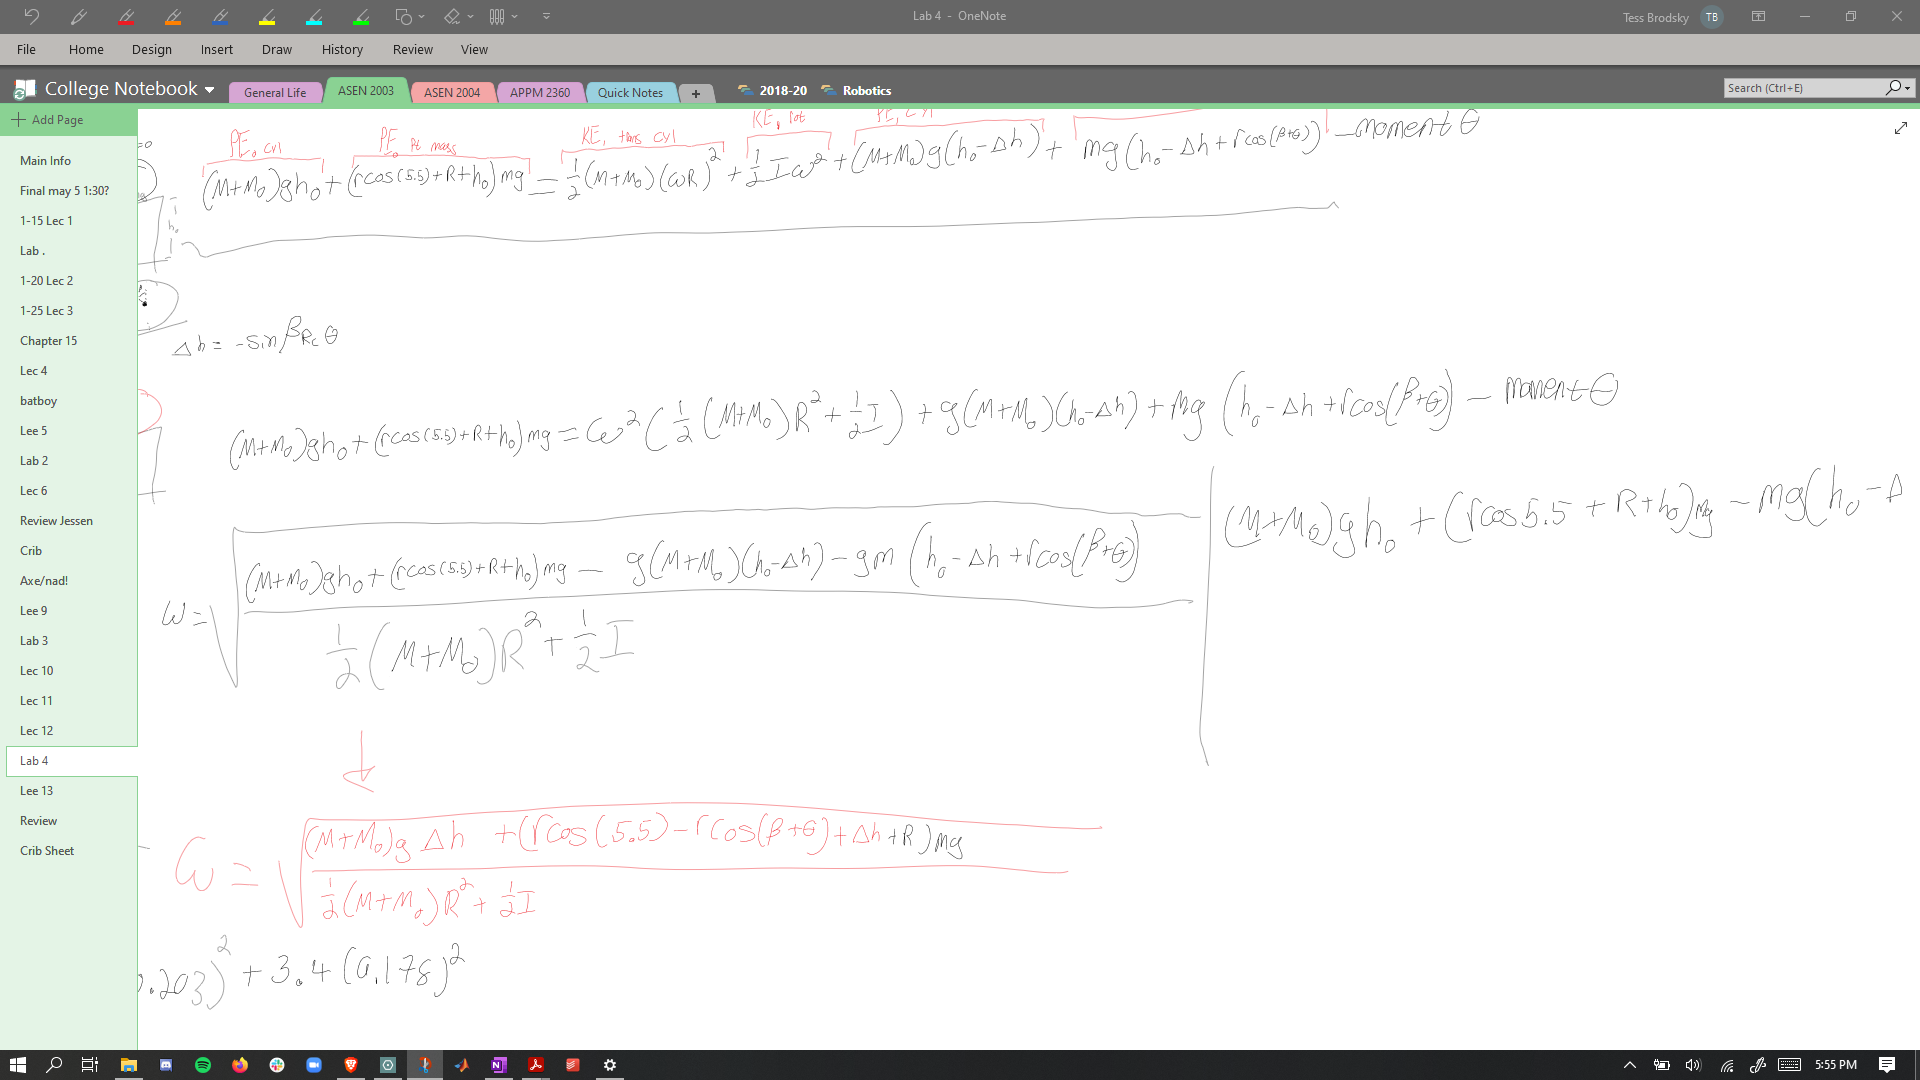 Lab 4 - OneNote
Tess Brodsky TB
File Home Design Insert Draw History Review View
College Notebook General Life ASEN 2003 ASEN 2004 APPM 2360 Quick Notes + 2018-20 Robotics
Search (Ctrl+E)
Add Page
Main Info
Final may 5 1:30?
1-15 Lec 1
Lab .
1-20 Lec 2
1-25 Lec 3
Chapter 15
Lec 4
batboy
Lee 5
Lab 2
Lec 6
Review Jessen
Crib
Axe/nad!
Lee 9
Lab 3
Lec 10
Lec 11
Lec 12
Lab 4
Lee 13
Review
Crib Sheet
PE₀ cyl PE₀ pt mass KE, trans cyl KE, rot PE, cyl
(M+M₀)gh₀+(rcos(5.5)+R+h₀)mg=½(M+M₀)(ωR)²+½Iω²+(M+M₀)g(h₀-Δh)+mg(h₀-Δh+rcos(β+θ))-moment θ
h₀
Δh = -sinβR꜀θ
(M+M₀)gh₀+(rcos(5.5)+R+h₀)mg=ω²(½(M+M₀)R²+½I)+g(M+M₀)(h₀-Δh)+mg(h₀-Δh+rcos(β+θ))-momentθ
(M+M₀)gh₀+(rcos5.5+R+h₀)mg-mg(h₀-Δ
ω=√((M+M₀)gh₀+(rcos(5.5)+R+h₀)mg-g(M+M₀)(h₀-Δh)-gm(h₀-Δh+rcos(β+θ)) / ½(M+M₀)R²+½I)
ω=√((M+M₀)gΔh+(rcos(5.5)-rcos(β+θ)+Δh+R)mg / ½(M+M₀)R²+½I)
.203)²+3.4(0.178)²
5:55 PM